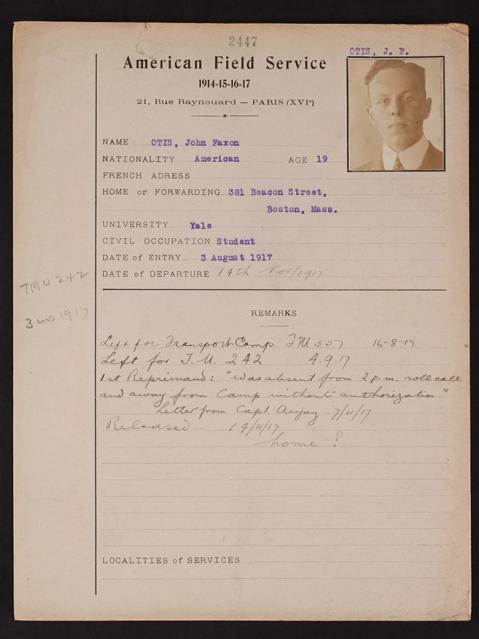 2447
OTIS, J. F.
American Field Service
1914-15-16-17
21, Rue Raynouard — PARIS (XVIe)
NAME OTIS, John Faxon
NATIONALITY American AGE 19
FRENCH ADRESS
HOME or FORWARDING 381 Beacon Street,
Boston, Mass.
UNIVERSITY Yale
CIVIL OCCUPATION Student
DATE of ENTRY 3 August 1917
DATE of DEPARTURE 14th Nov/1917
TMU 242
3 mos 1917
REMARKS
Left for Transport Camp TMU 537 16-8-17
Left for T.U. 242 4.9.17
1st Reprimand: "Was absent from 2 p.m. roll call
and away from Camp without authorization"
Letter from Capt. 7/11/17
Released 14/11/17
home?
LOCALITIES of SERVICES